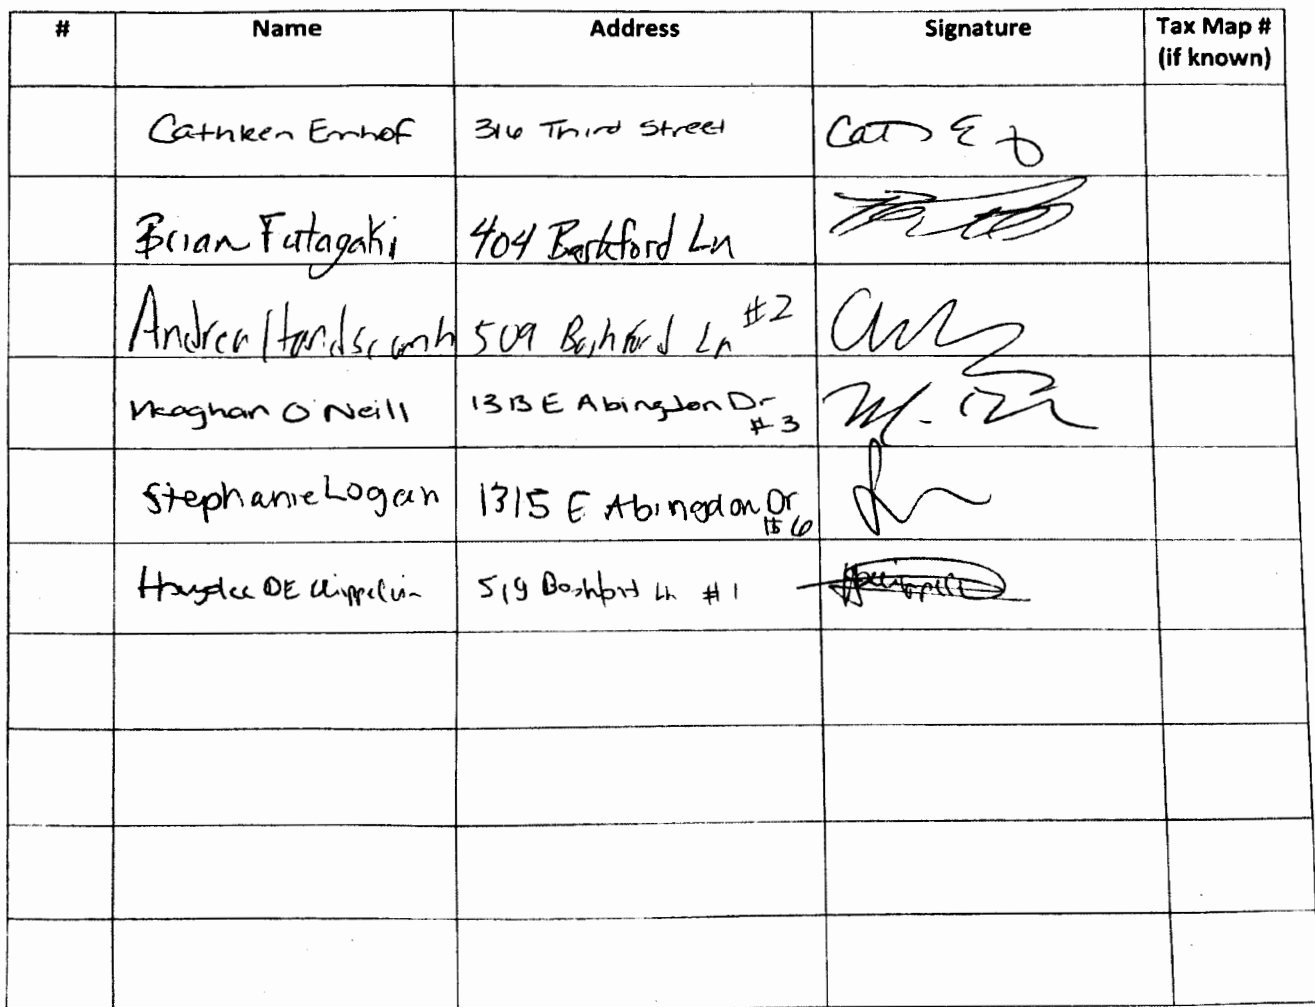 # Name Address Signature Tax Map # (if known)
Cathleen Emhof 316 Third Street
Brian Futagaki 404 Bashford Ln
Andrea Handscomb 509 Bashford Ln #2
Meaghan O'Neill 1313 E Abingdon Dr #3
Stephanie Logan 1315 E Abingdon Dr #6
Haydee DE 519 Bashford Ln #1